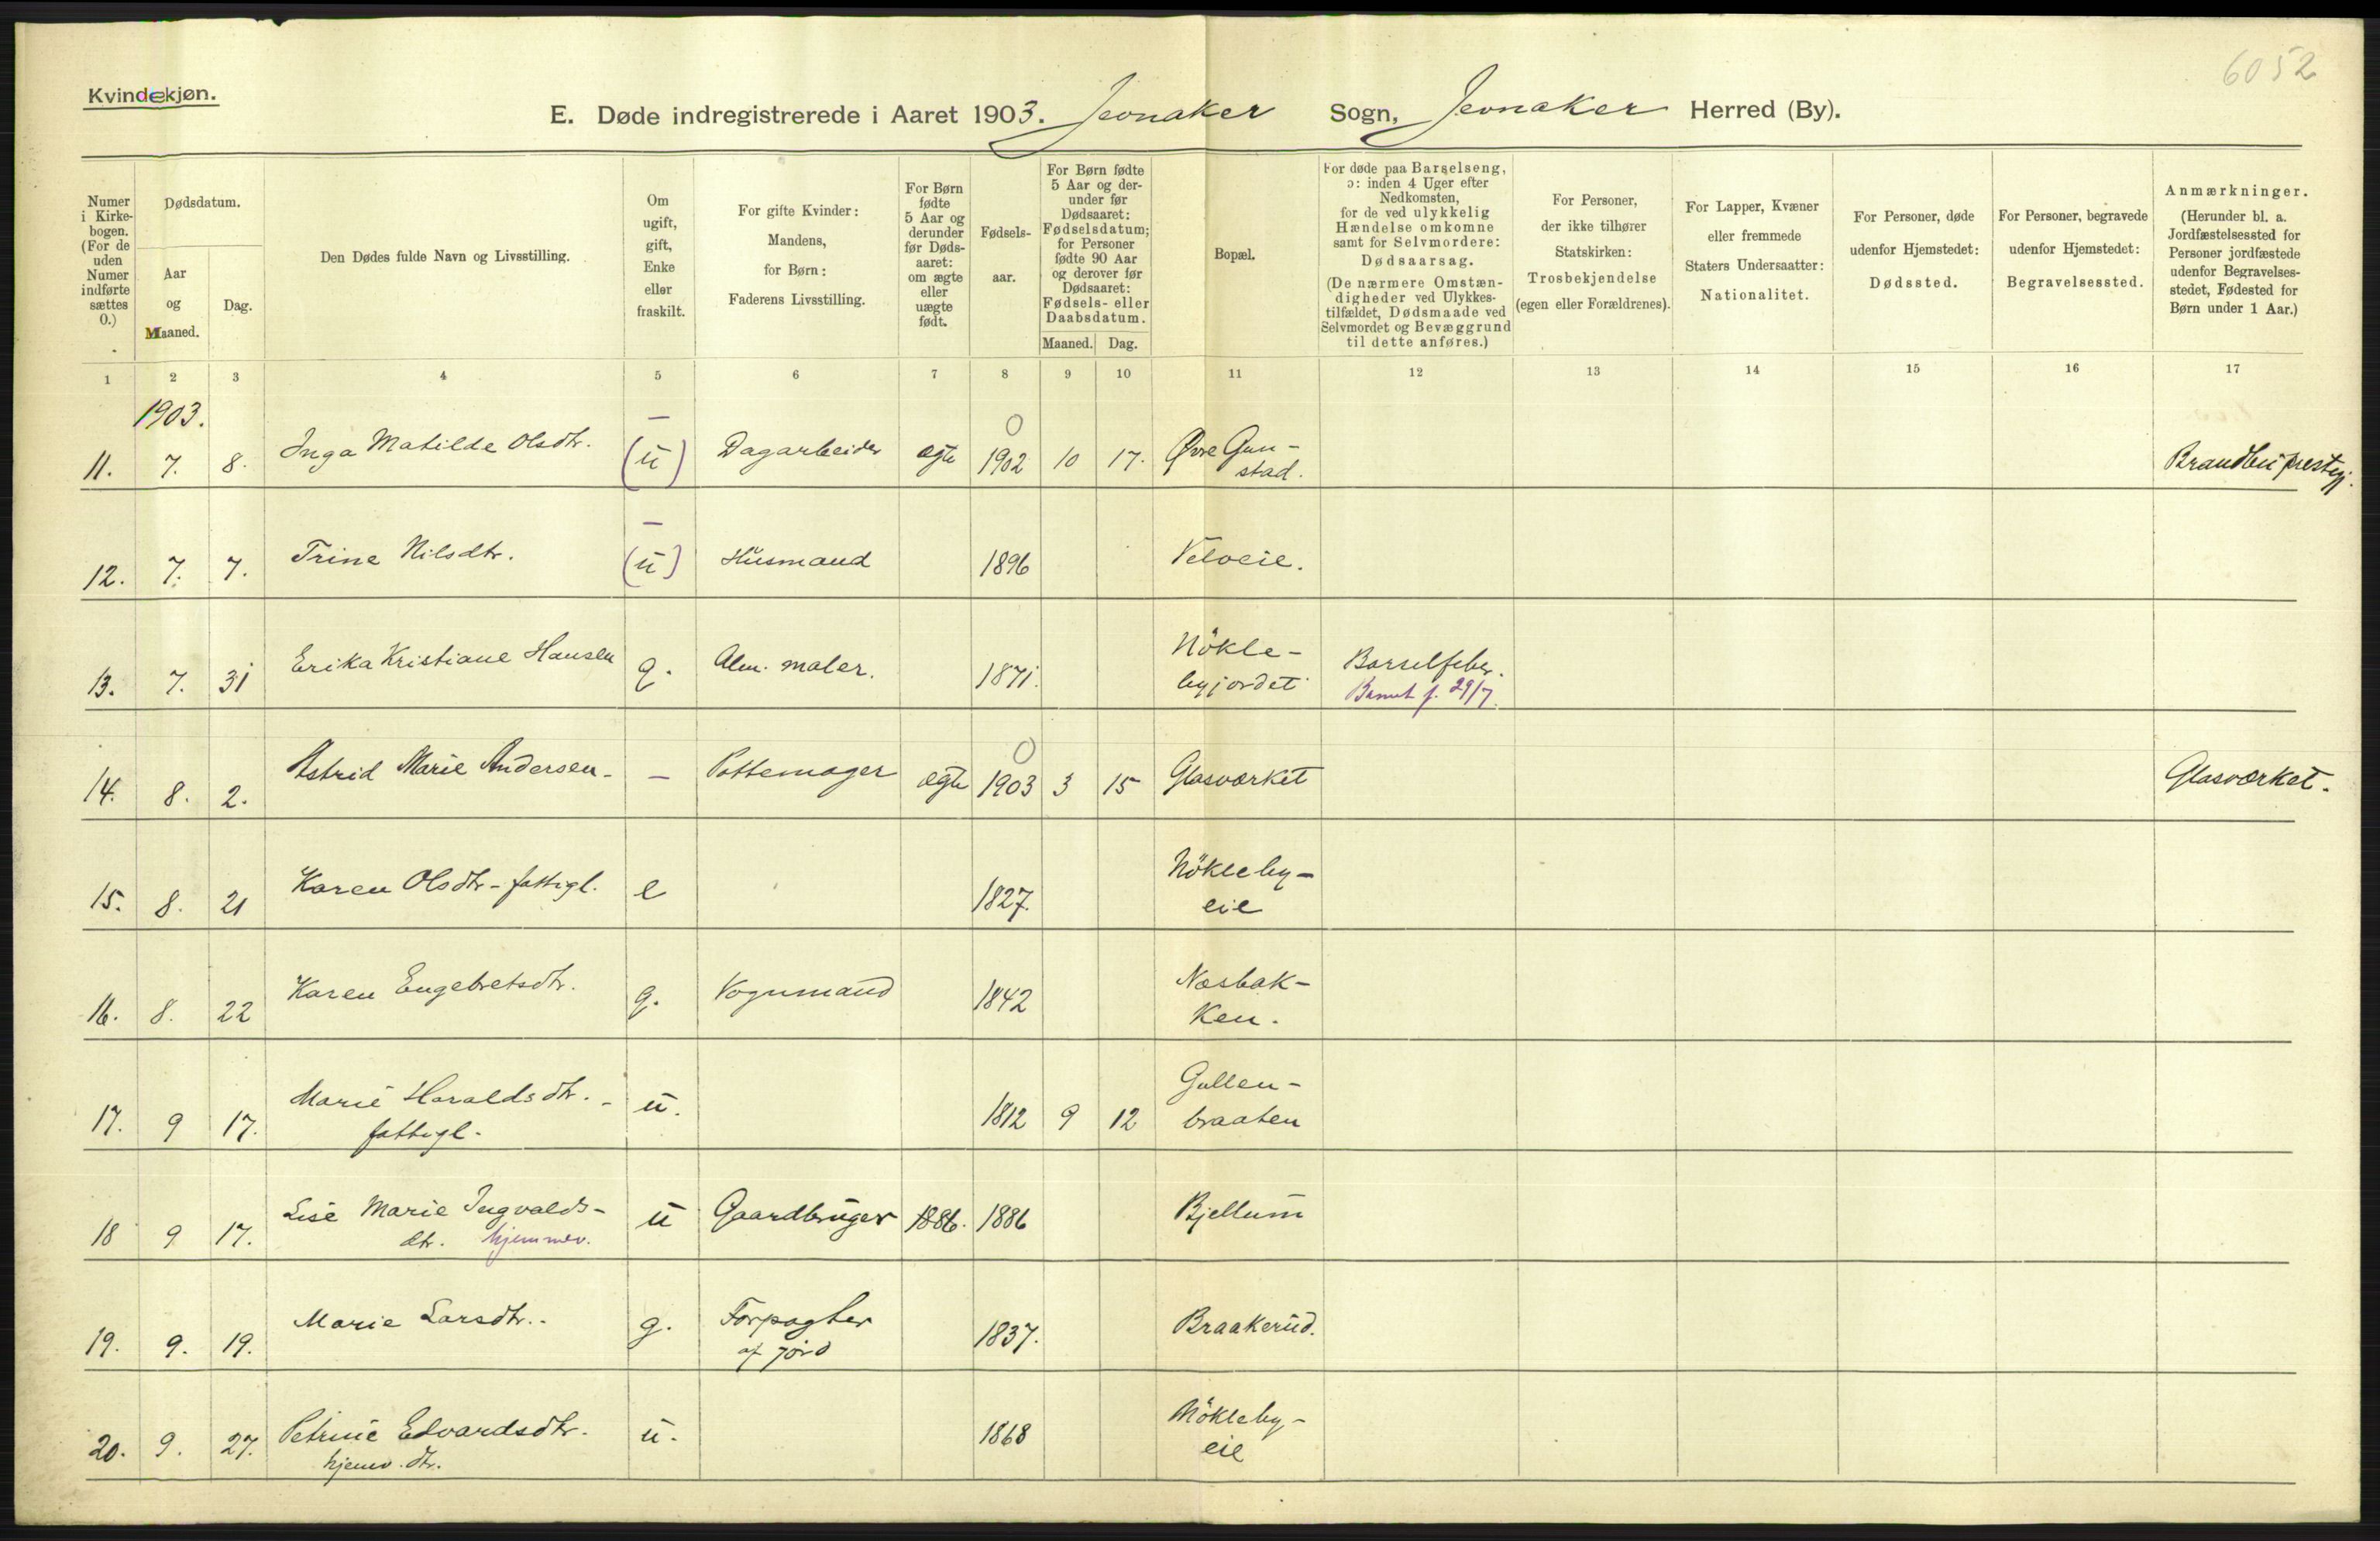 6052
Kvindekjøn.
E. Døde indregistrerede i Aaret 1903. Jevnaker Sogn, Jevnaker Herred (By).
Numer i Kirke-bogen. (For de uden Numer indførte sættes 0.)
Dødsdatum.
Aar og Maaned.
Dag.
Den Dødes fulde Navn og Livsstilling.
Om ugift, gift, Enke eller fraskilt.
For gifte Kvinder: Mandens, for Børn: Faderens Livsstilling.
For Børn fødte 5 Aar og derunder før Døds-aaret: om ægte eller uægte født.
Fødsels-aar.
For Børn fødte 5 Aar og der-under før Dødsaaret: Fødselsdatum; for Personer fødte 90 Aar og derover før Dødsaaret: Fødsels- eller Daabsdatum.
Maaned. Dag.
Bopæl.
For døde paa Barselseng, ɔ: inden 4 Uger efter Nedkomsten, for de ved ulykkelig Hændelse omkomne samt for Selvmordere: Dødsaarsag. (De nærmere Omstæn-digheder ved Ulykkes-tilfældet, Dødsmaade ved Selvmordet og Bevæggrund til dette anføres.)
For Personer, der ikke tilhører Statskirken: Trosbekjendelse (egen eller Forældrenes).
For Lapper, Kvæner eller fremmede Staters Undersaatter: Nationalitet.
For Personer, døde udenfor Hjemstedet: Dødssted.
For Personer, begravede udenfor Hjemstedet: Begravelsessted.
Anmærkninger. (Herunder bl. a. Jordfæstelsessted for Personer jordfæstede udenfor Begravelses-stedet, Fødested for Børn under 1 Aar.)
1 2 3 4 5 6 7 8 9 10 11 12 13 14 15 16 17
1903. — 0
11. 7. 8. Inga Matilde Olsdtr. (u) Dagarbeider ægte 1902 10 17. Øvre Gun-
stad. Brandbu prestgj.
—
12. 7. 7. Trine Nilsdtr. (u) Husmand 1896 Velveie.
13. 7. 31 Erika Kristiane Hansen g. Alm. maler. 1871. Nökle-
byjordet Barselfeber.
Barnet f. 29/7.
0
14. 8. 2. Astrid Marie Andersen - — Pottemager ægte 1903 3 15 Glasværket Glasværket.
15. 8. 21 Karen Olsdtr - fattigl. e 1827. Nökleby-
eie
16. 8. 22 Karen Engebretsdtr. g. Vognmand 1842 Næsbak-
ken.
17. 9 17. Marie Haraldsdtr. - u. 1812 9 12 Gullen-
fattigl. braaten
18 9 17. Lise Marie Ingvalds- u Gaardbruger 1886. 1886 Bjellum
dtr. hjemmev.
19. 9. 19. Marie Larsdtr. g. Forpagter 1837. Braakerud.
af jord
20. 9. 27. Petrine Edvardsdtr. u. 1868 Nökleby-
hjemv. dtr. eie